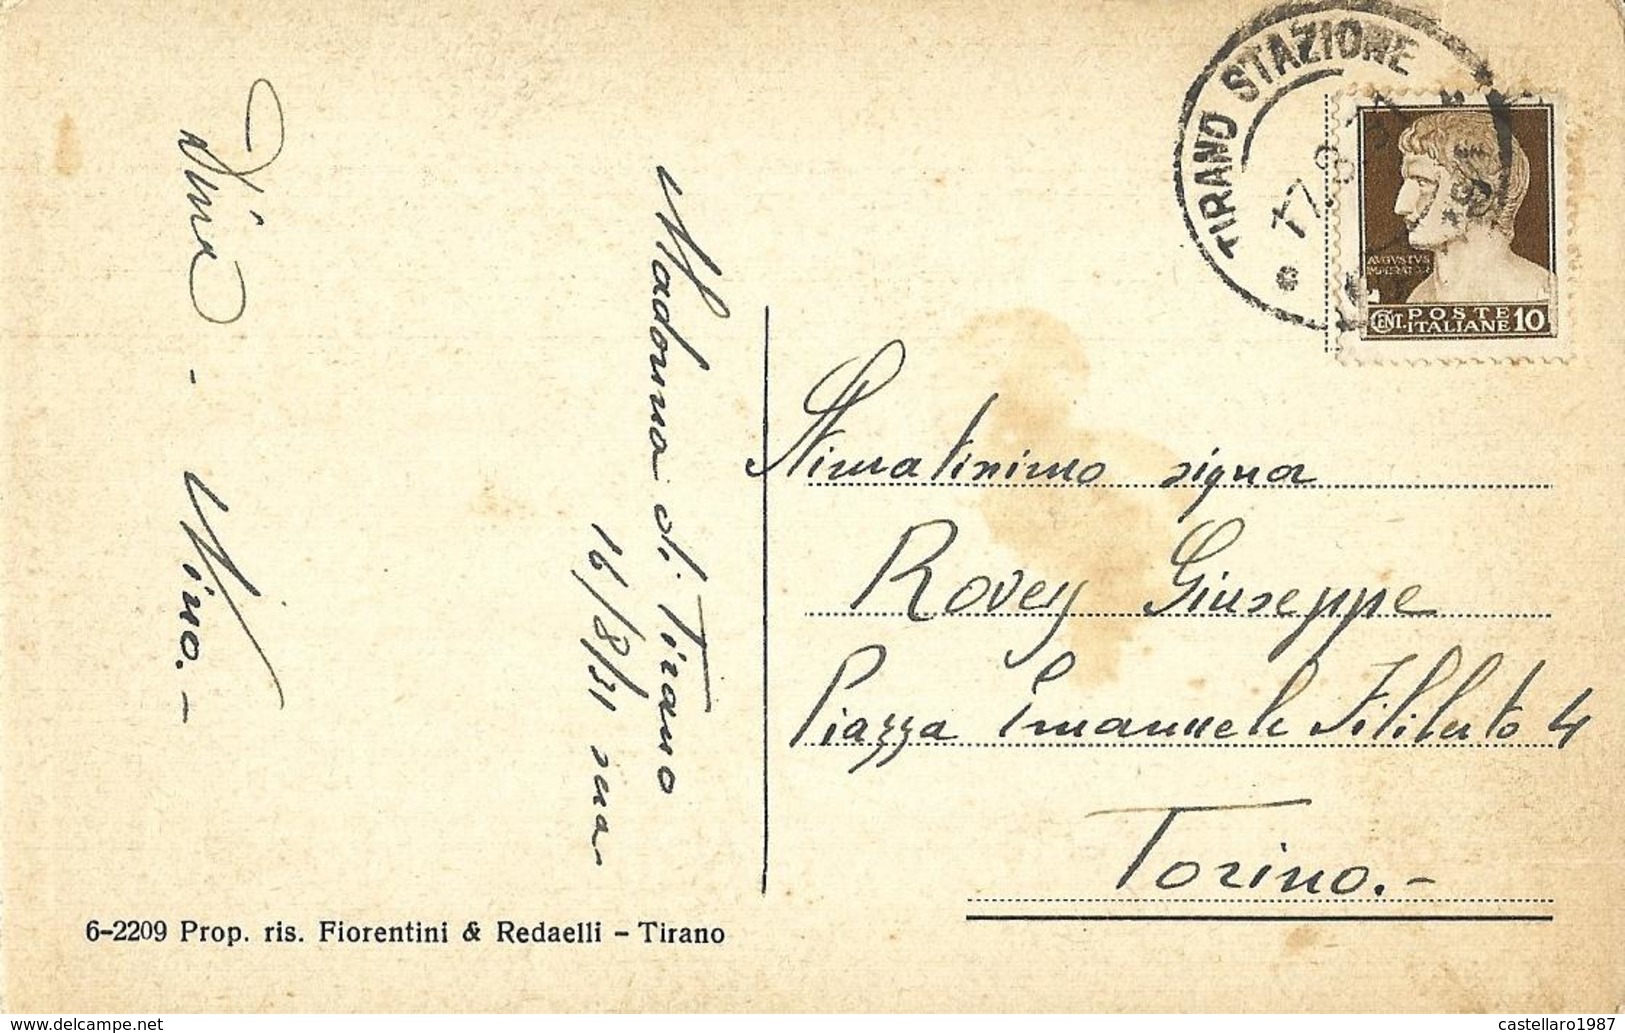 TIRANO STAZIONE
17.8.31
AVGVSTVS
IMPERATOR
CENT. POSTE ITALIANE 10
Madonna di Tirano
16/8/31
Dina - Nino. -
Stimatissimo signor
Rovey Giuseppe
Piazza Emanuele Filiberto 4
Torino. -
6-2209 Prop. ris. Fiorentini & Redaelli - Tirano
www.delcampe.net
castellaro1987